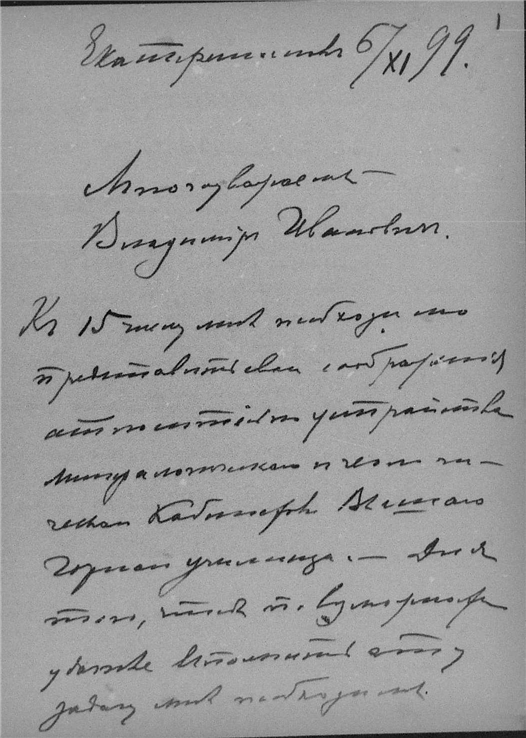 1
Екатеринославъ 6/XI 99.
Многоуважаемый
Владимиръ Ивановичъ.
Къ 15 числу мнѣ необходимо
представить свои соображенія
относительно устройства
минералогическаго и геологи-
ческаго Кабинетовъ Высшаго
Горнаго училища. — Для
того, чтобы
удачнѣе исполнить эту
задачу мнѣ необходимо